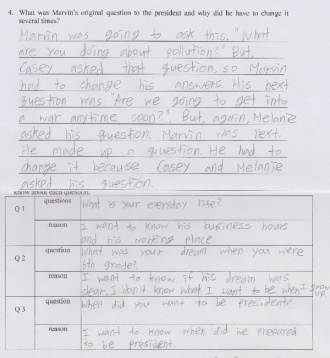 4. What was Marvin's original question to the president and why did he have to change it
several times?
Marvin was going to ask this. "What
are you doing about pollution?" But,
Casey asked that question, so Marvin
had to change his answers. His next
question was. "Are we going to get into
a war anytime soon?". But, again, Melanie
asked his question. Marvin was next.
He made up a question. He had to
change it because Casey and Melanie
asked his question.
know about each question.
Q 1 questions What is your everyday life?
reason I want to know his business hours
and his working place
Q 2 question What was your dream when you were
5th grade?
reason I want to know if his dream was
clear. I don't know what I want to be when I grow
up.
Q 3 question When did you want to be presidente
reason I want to know when did he prepared
to be president.